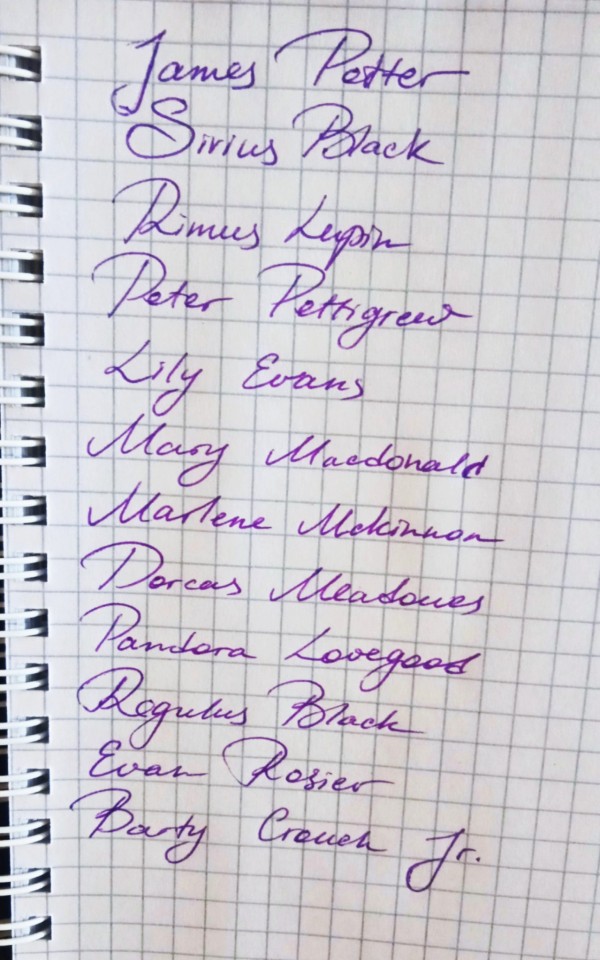 James Potter
Sirius Black
Rimus Lupin
Peter Pettigrew
Lily Evans
Mary Macdonald
Marlene Mckinnon
Dorcas Meadowes
Pandora Lovegood
Regulus Black
Evan Rosier
Barty Crouch Jr.